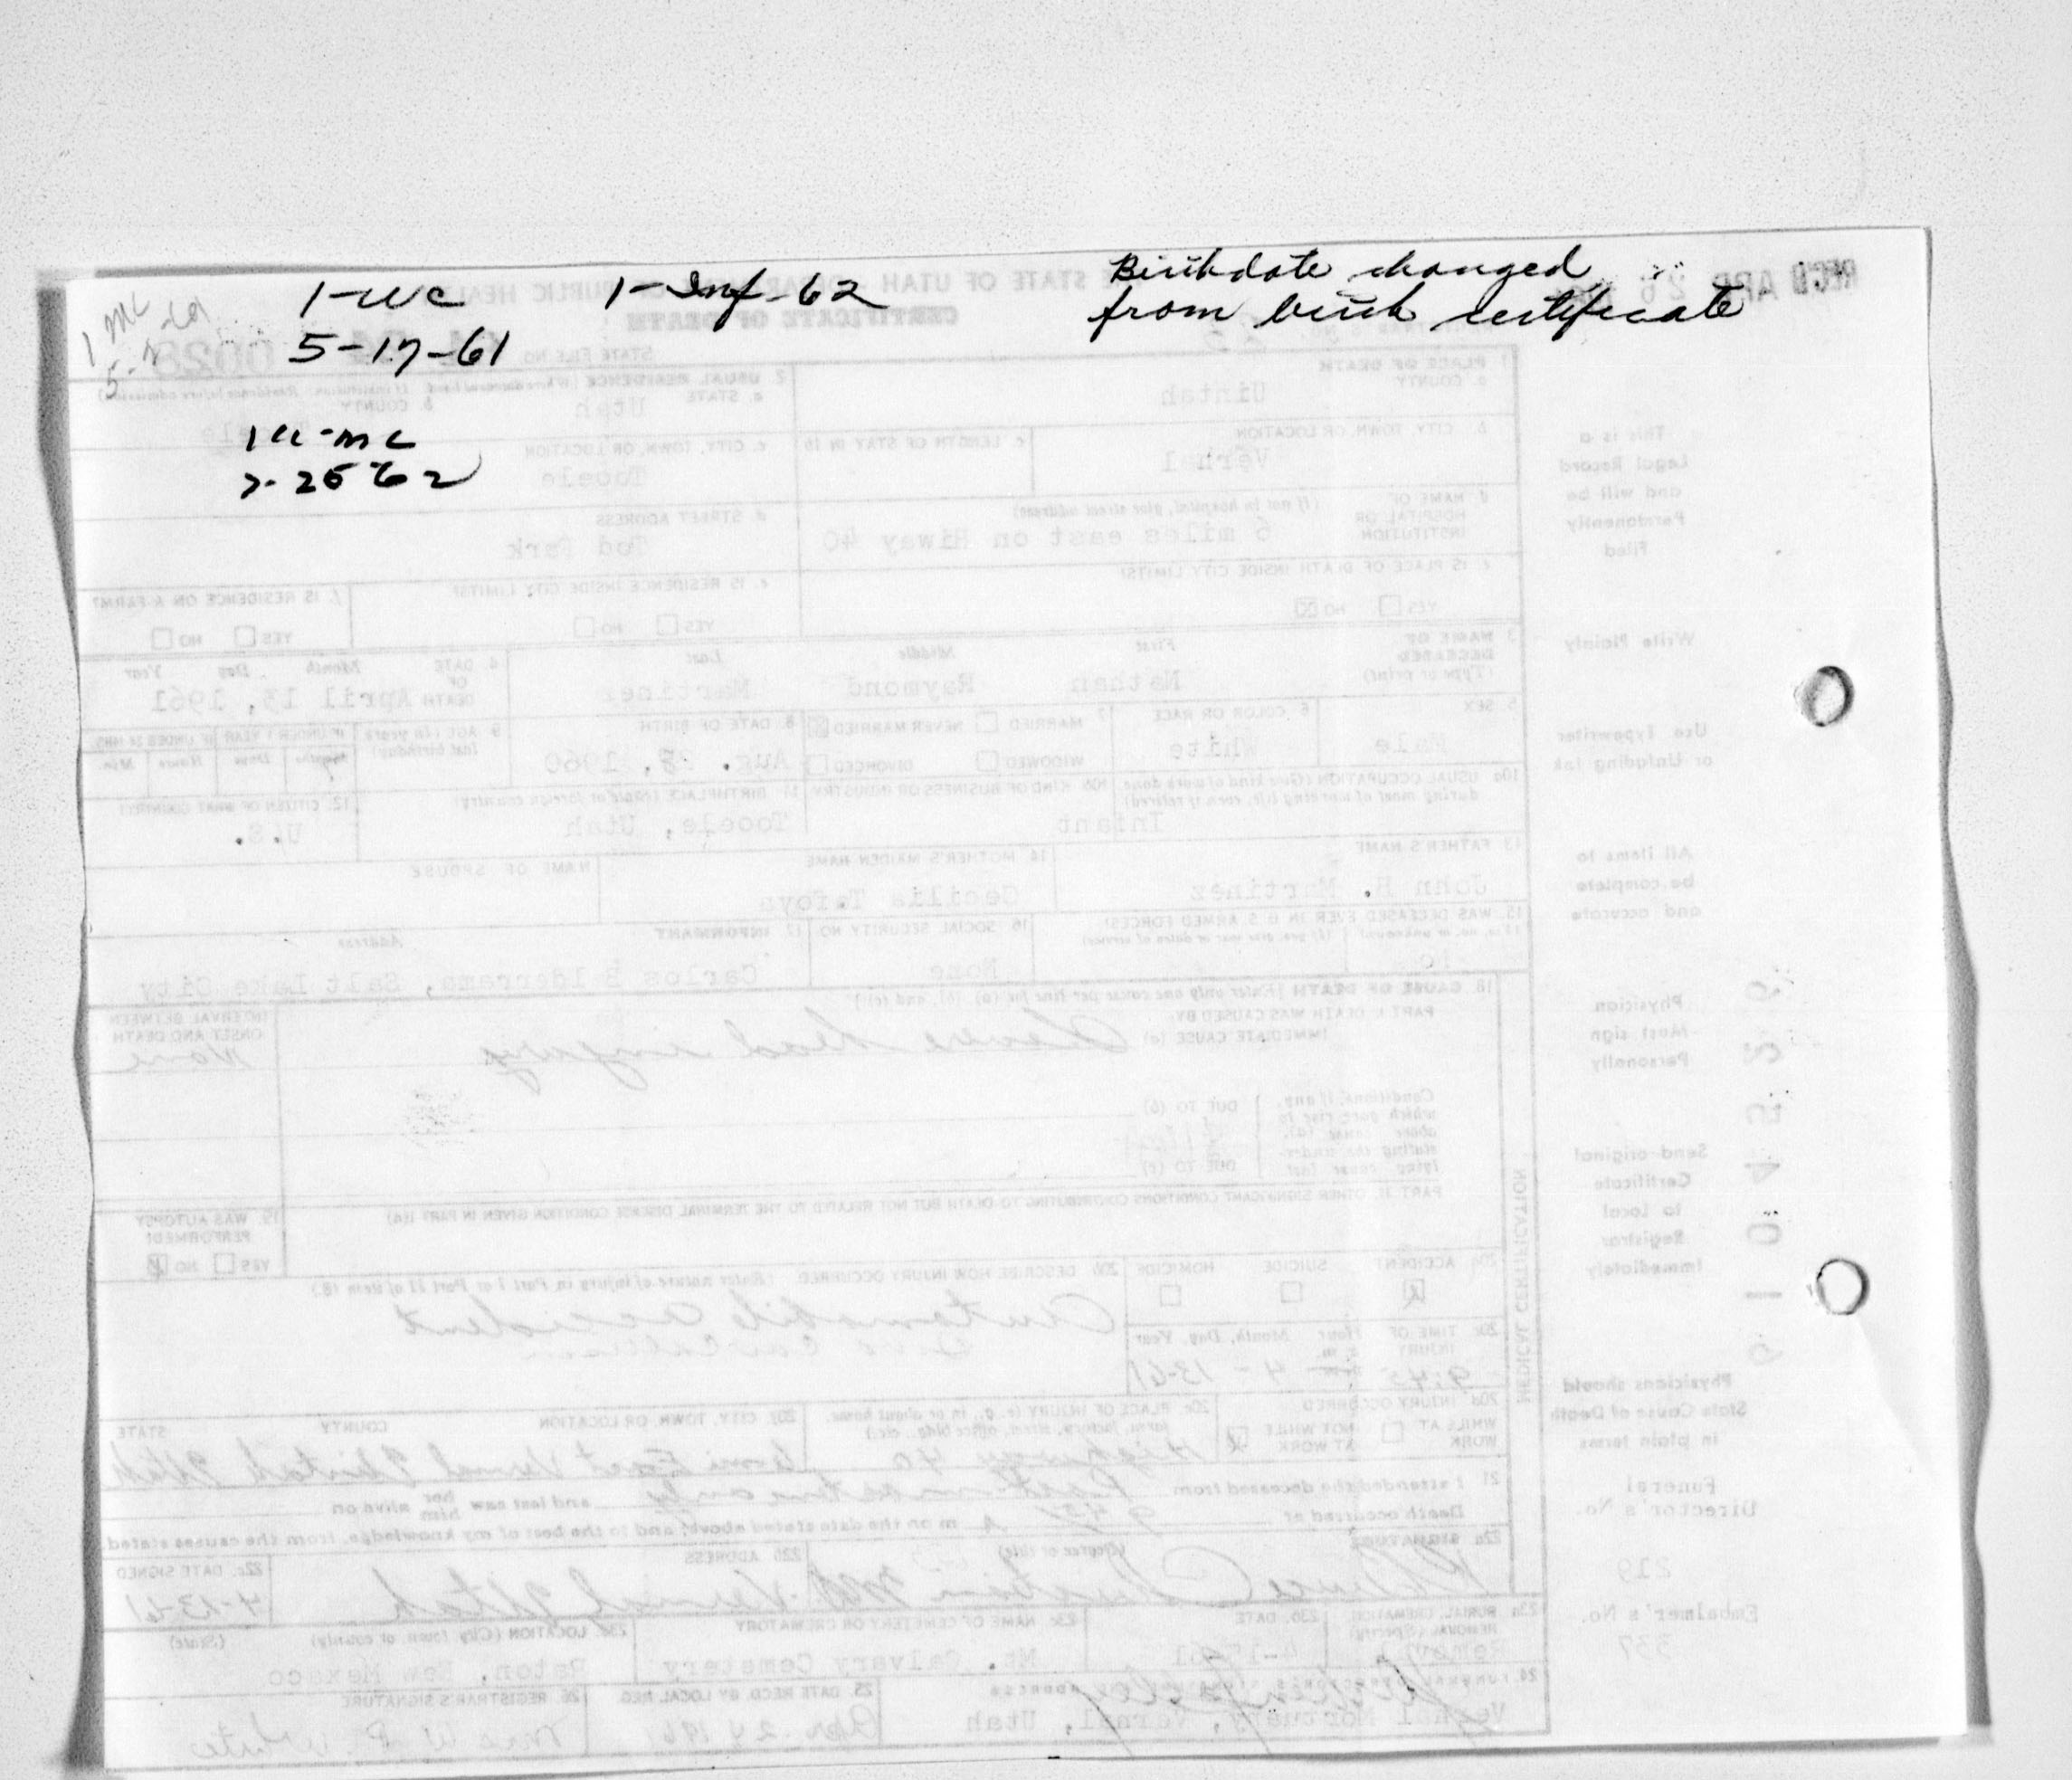 1-WC
5-17-61
1-Inf-62
Birthdate changed
from birth certificate
1 MC
REC'D APR 26
THE STATE OF UTAH DEPARTMENT OF PUBLIC HEALTH
CERTIFICATE OF DEATH
STATE FILE NO.
1. PLACE OF DEATH
a. COUNTY
Uintah
2. USUAL RESIDENCE (Where deceased lived. If institution: Residence before admission)
a. STATE
Utah
b. COUNTY
b. CITY, TOWN, OR LOCATION
Vernal
c. LENGTH OF STAY IN 1b
c. CITY, TOWN, OR LOCATION
Tooele
d. NAME OF HOSPITAL OR INSTITUTION
(If not in hospital, give street address)
6 miles east on Hiway 40
d. STREET ADDRESS
Tod Park
e. IS PLACE OF DEATH INSIDE CITY LIMITS?
YES NO
e. IS RESIDENCE INSIDE CITY LIMITS?
YES NO
f. IS RESIDENCE ON A FARM?
YES NO
3. NAME OF DECEASED (Type or print)
First Middle Last
Nathan Raymond Martinez
4. DATE OF DEATH
Month Day Year
April 13, 1961
5. SEX
Male
6. COLOR OR RACE
White
7. MARRIED NEVER MARRIED
WIDOWED DIVORCED
8. DATE OF BIRTH
Aug. 1960
9. AGE (In years last birthday)
IF UNDER 1 YEAR
IF UNDER 24 HRS.
Months Days Hours Min.
10a. USUAL OCCUPATION (Give kind of work done during most of working life, even if retired)
Infant
10b. KIND OF BUSINESS OR INDUSTRY
11. BIRTHPLACE (State or foreign country)
Tooele, Utah
12. CITIZEN OF WHAT COUNTRY?
U.S.
13. FATHER'S NAME
John Martinez
14. MOTHER'S MAIDEN NAME
Cecilia Tafoya
NAME OF SPOUSE
15. WAS DECEASED EVER IN U.S. ARMED FORCES?
No
16. SOCIAL SECURITY NO.
None
17. INFORMANT Address
Carlos Balderrama, Salt Lake City
18. CAUSE OF DEATH [Enter only one cause per line for (a), (b), and (c)]
PART I. DEATH WAS CAUSED BY:
IMMEDIATE CAUSE (a)
Severe head injury
INTERVAL BETWEEN ONSET AND DEATH
None
Conditions, if any, which gave rise to above cause (a), stating the underlying cause last
DUE TO (b)
DUE TO (c)
PART II. OTHER SIGNIFICANT CONDITIONS CONTRIBUTING TO DEATH BUT NOT RELATED TO THE TERMINAL DISEASE CONDITION GIVEN IN PART I(a)
19. WAS AUTOPSY PERFORMED?
YES NO
20a. ACCIDENT SUICIDE HOMICIDE
20b. DESCRIBE HOW INJURY OCCURRED. (Enter nature of injury in Part I or Part II of item 18.)
Automobile accident
20c. TIME OF INJURY
Hour Month, Day, Year
9:45 4-13-61
20d. INJURY OCCURRED
WHILE AT WORK NOT WHILE AT WORK
20e. PLACE OF INJURY (e.g., in or about home, farm, factory, street, office bldg., etc.)
Highway 40
20f. CITY, TOWN, OR LOCATION COUNTY STATE
6 mi East Vernal Uintah Utah
21. I attended the deceased from
and last saw her him alive on
Death occurred at m on the date stated above; and to the best of my knowledge, from the causes stated.
22a. SIGNATURE (Degree or title)
22b. ADDRESS
Vernal Utah
22c. DATE SIGNED
4-13-61
23a. BURIAL, CREMATION, REMOVAL (Specify)
Removal
23b. DATE
4-15-61
23c. NAME OF CEMETERY OR CREMATORY
Mt. Calvary Cemetery
23d. LOCATION (City, town, or county) (State)
Raton, New Mexico
24. FUNERAL DIRECTOR'S SIGNATURE ADDRESS
Vernal Mortuary, Vernal, Utah
25. DATE RECD. BY LOCAL REG.
Apr. 24 1961
26. REGISTRAR'S SIGNATURE
Mrs W. P. White
MEDICAL CERTIFICATION
This is a
Legal Record
and will be
Permanently
Filed
Write Plainly
Use Typewriter
or Unfading Ink
All items to
be complete
and accurate
Physician
Must sign
Personally
Send original
Certificate
to Local
Registrar
Immediately
Physicians should
State Cause of Death
in plain terms
Funeral
Director's No.
219
Embalmer's No.
337